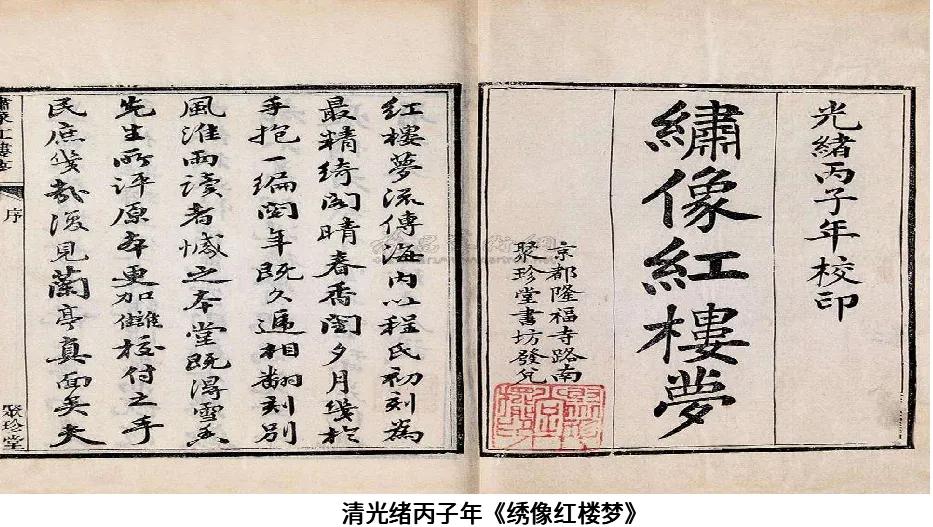 光緒丙子年校印
繡像紅樓夢
京都隆福寺路南
聚珍堂書坊發兌
紅樓夢流傳海内以程氏初刻為
最精綺閣晴春香閨夕月幾於
手抱一編閱年既久遞相翻刻別
風淮雨讀者憾之本堂既得雪香
先生所評原本更加讎校付之手
民庶幾哉復見蘭亭真面矣夫
紅樓夢
序
聚珍堂
清光绪丙子年《绣像红楼梦》